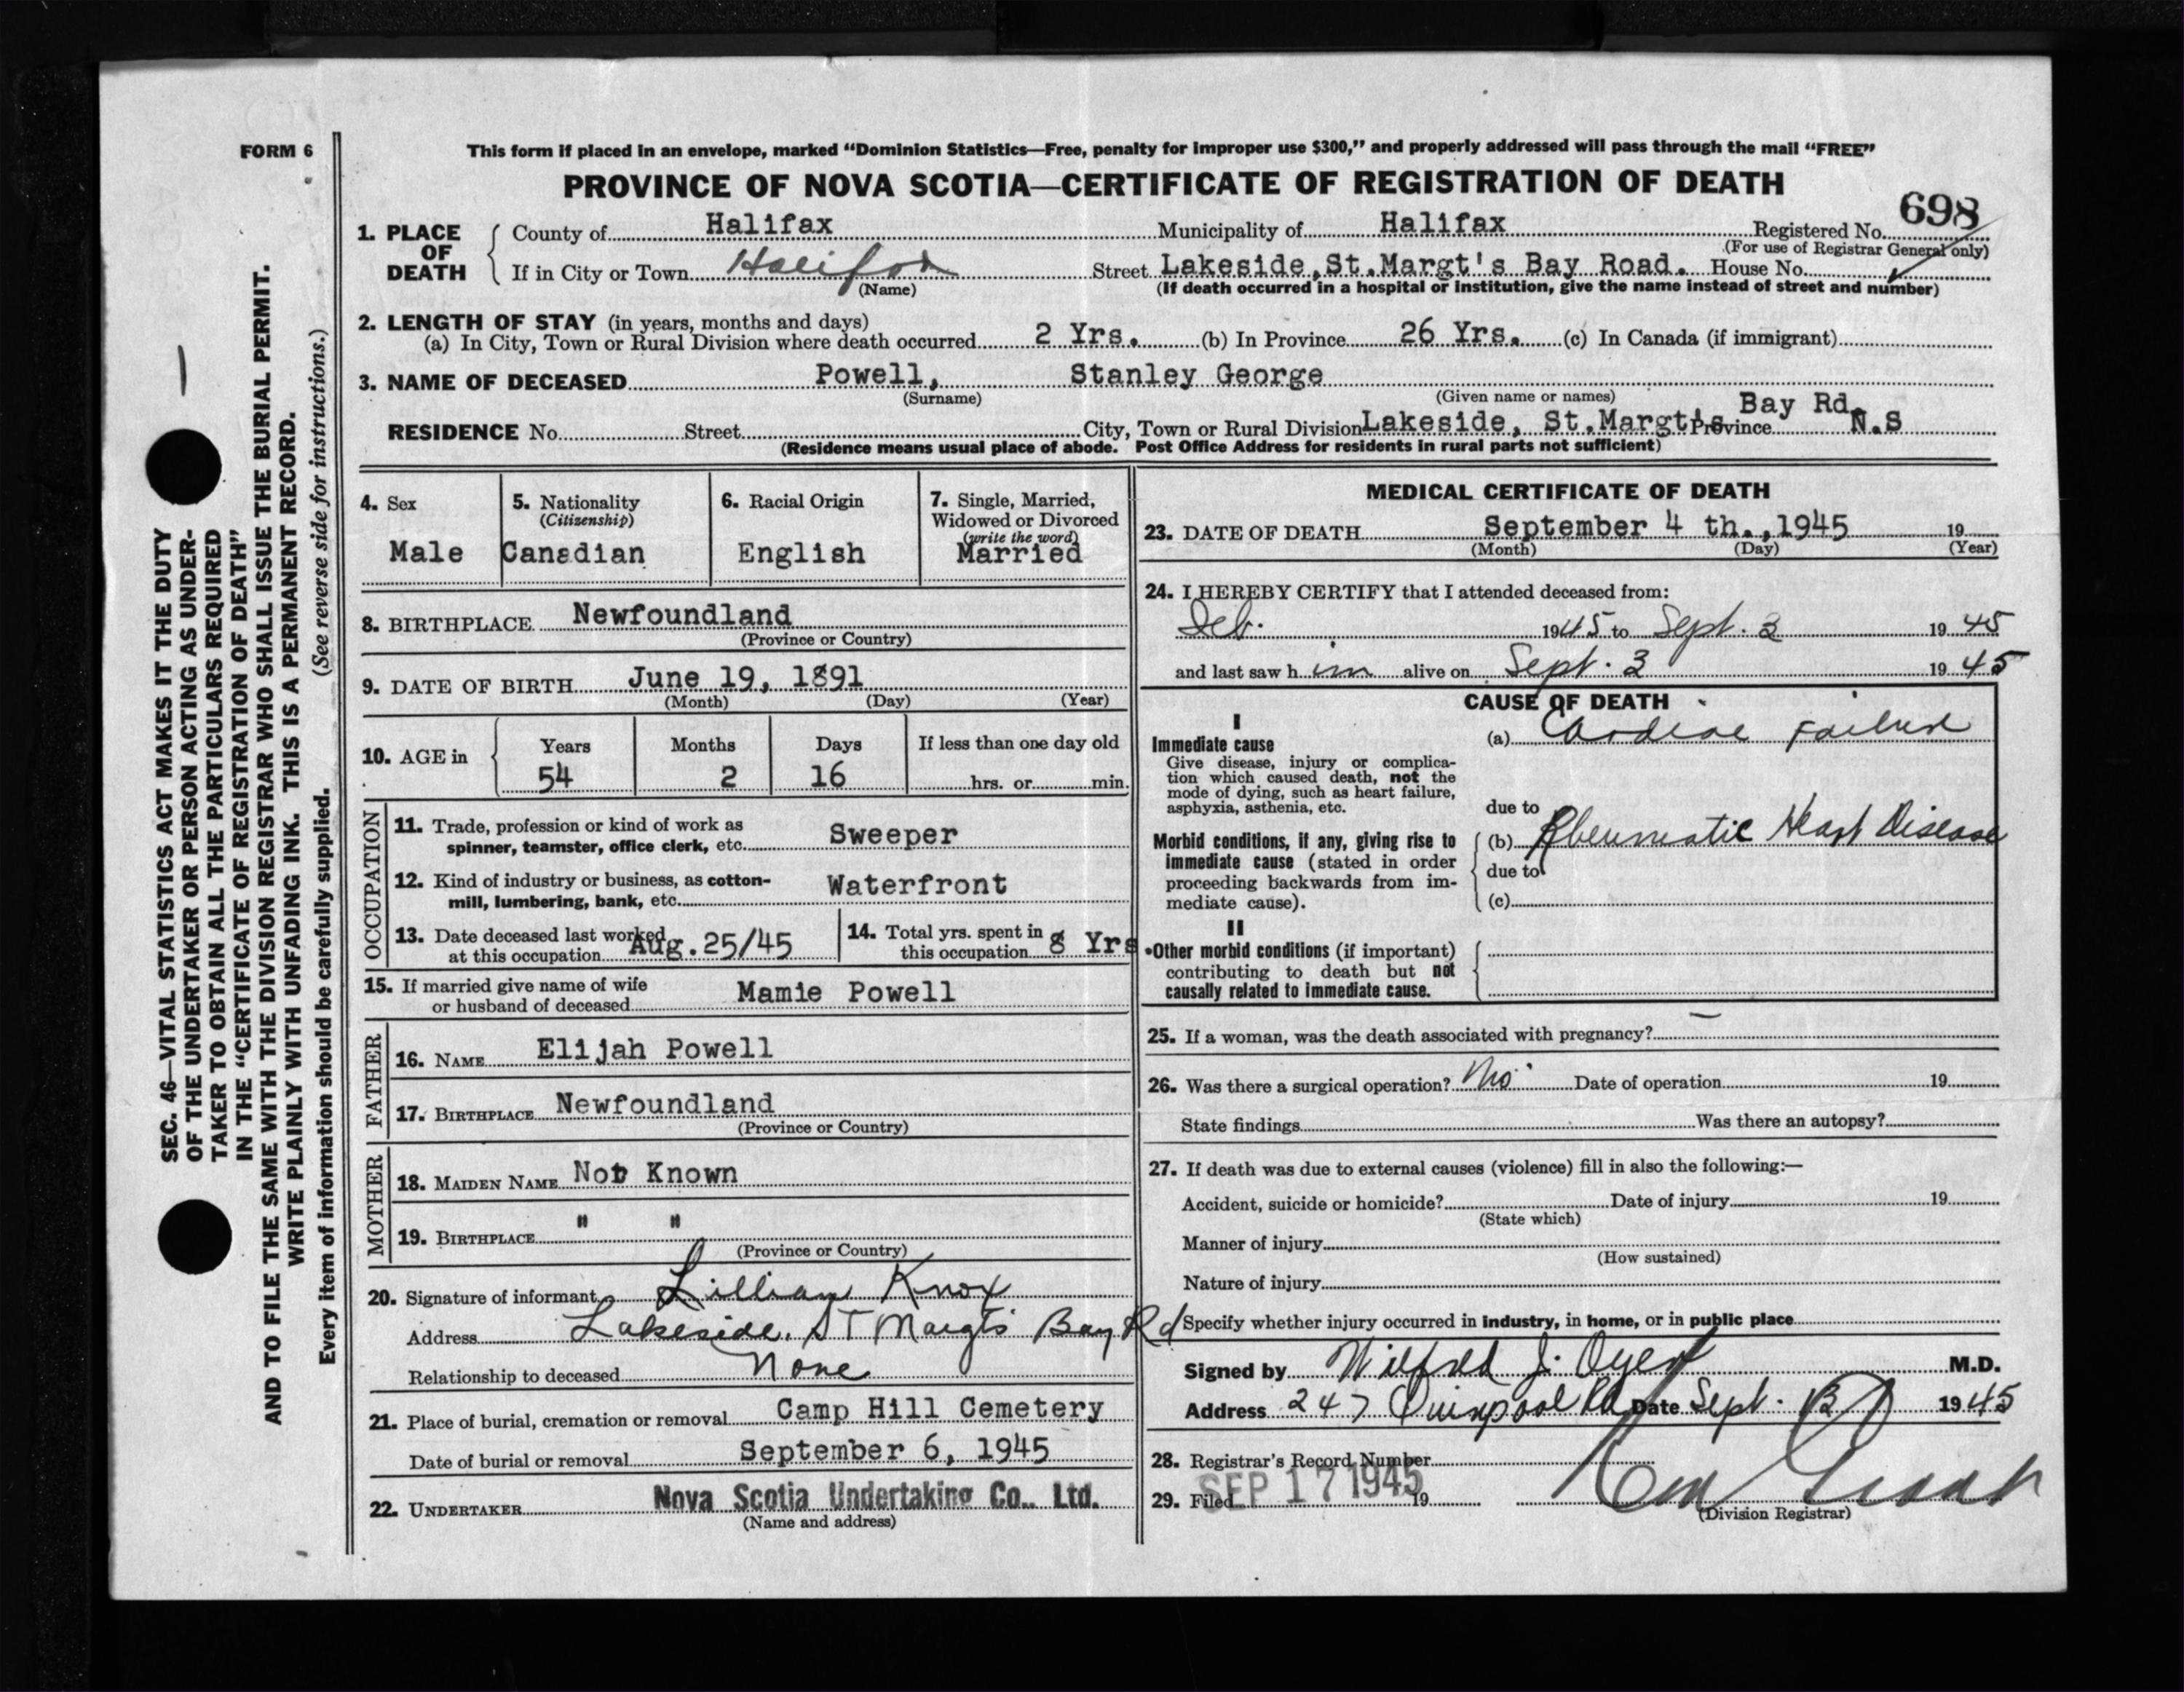 FORM 6
This form if placed in an envelope, marked “Dominion Statistics—Free, penalty for improper use $300,” and properly addressed will pass through the mail “FREE”
PROVINCE OF NOVA SCOTIA—CERTIFICATE OF REGISTRATION OF DEATH
698
1. PLACE OF DEATH County of Halifax Municipality of Halifax Registered No.
(For use of Registrar General only)
If in City or Town Halifax Street Lakeside, St.Margt's Bay Road. House No.
(Name) (If death occurred in a hospital or institution, give the name instead of street and number)
2. LENGTH OF STAY (in years, months and days)
(a) In City, Town or Rural Division where death occurred 2 Yrs. (b) In Province 26 Yrs. (c) In Canada (if immigrant)
3. NAME OF DECEASED Powell, Stanley George
(Surname) (Given name or names)
Bay Rd.
RESIDENCE No. Street City, Town or Rural Division Lakeside, St.Margt's Province N.S
(Residence means usual place of abode. Post Office Address for residents in rural parts not sufficient)
4. Sex
Male
5. Nationality
(Citizenship)
Canadian
6. Racial Origin
English
7. Single, Married,
Widowed or Divorced
(write the word)
Married
8. BIRTHPLACE Newfoundland
(Province or Country)
9. DATE OF BIRTH June 19, 1891
(Month) (Day) (Year)
10. AGE in Years Months Days If less than one day old
54 2 16 hrs. or min.
OCCUPATION
11. Trade, profession or kind of work as
spinner, teamster, office clerk, etc. Sweeper
12. Kind of industry or business, as cotton-
mill, lumbering, bank, etc. Waterfront
13. Date deceased last worked
at this occupation Aug.25/45
14. Total yrs. spent in
this occupation 8 Yrs
15. If married give name of wife
or husband of deceased Mamie Powell
FATHER
16. NAME Elijah Powell
17. BIRTHPLACE Newfoundland
(Province or Country)
MOTHER
18. MAIDEN NAME Not Known
19. BIRTHPLACE " "
(Province or Country)
20. Signature of informant Lillian Knox
Address Lakeside. St Margts Bay Rd
Relationship to deceased None
21. Place of burial, cremation or removal Camp Hill Cemetery
Date of burial or removal September 6, 1945
22. UNDERTAKER Nova Scotia Undertaking Co., Ltd.
(Name and address)
MEDICAL CERTIFICATE OF DEATH
23. DATE OF DEATH September 4 th.,1945 19
(Month) (Day) (Year)
24. I HEREBY CERTIFY that I attended deceased from:
Feb. 1945 to Sept. 3 19 45
and last saw h im alive on Sept. 3 19 45
CAUSE OF DEATH
I
Immediate cause
Give disease, injury or complica-
tion which caused death, not the
mode of dying, such as heart failure,
asphyxia, asthenia, etc.
(a) Cardiac Failure
due to
Morbid conditions, if any, giving rise to
immediate cause (stated in order
proceeding backwards from im-
mediate cause).
(b) Rheumatic Heart Disease
due to
(c)
II
Other morbid conditions (if important)
contributing to death but not
causally related to immediate cause.
25. If a woman, was the death associated with pregnancy? —
26. Was there a surgical operation? No Date of operation 19
State findings Was there an autopsy?
27. If death was due to external causes (violence) fill in also the following:—
Accident, suicide or homicide? Date of injury 19
(State which)
Manner of injury
(How sustained)
Nature of injury
Specify whether injury occurred in industry, in home, or in public place
Signed by Wilfred J. M.D.
Address 247 Quinpool Rd Date Sept. 1945
28. Registrar's Record Number
29. Filed SEP 17 1945 19
(Division Registrar)
SEC. 46—VITAL STATISTICS ACT MAKES IT THE DUTY
OF THE UNDERTAKER OR PERSON ACTING AS UNDER-
TAKER TO OBTAIN ALL THE PARTICULARS REQUIRED
IN THE “CERTIFICATE OF REGISTRATION OF DEATH”
AND TO FILE THE SAME WITH THE DIVISION REGISTRAR WHO SHALL ISSUE THE BURIAL PERMIT.
WRITE PLAINLY WITH UNFADING INK. THIS IS A PERMANENT RECORD.
Every item of information should be carefully supplied. (See reverse side for instructions.)